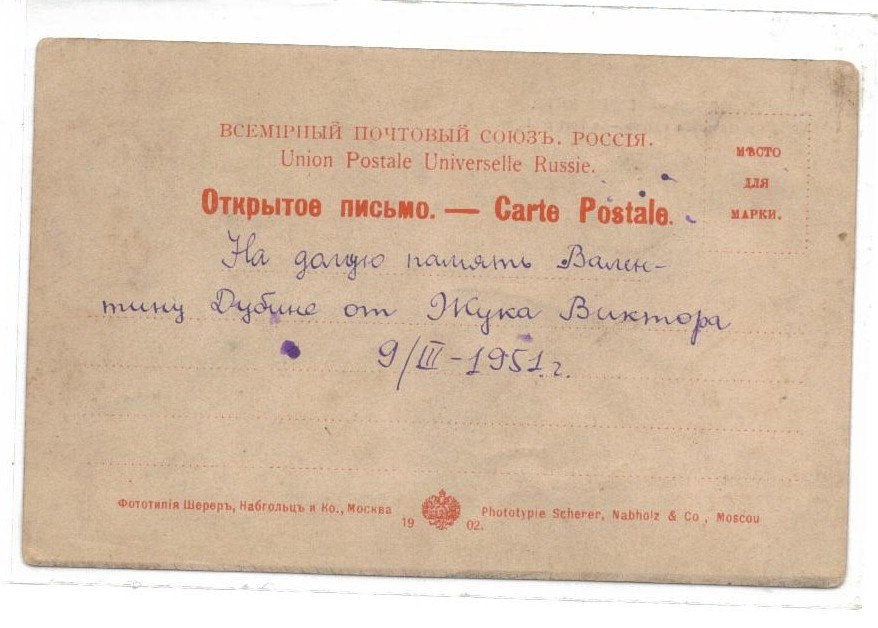 ВСЕМІРНЫЙ ПОЧТОВЫЙ СОЮЗЪ. РОССІЯ.
Union Postale Universelle Russie.
МѢСТО
ДЛЯ
МАРКИ.
Открытое письмо. — Carte Postale.
На долгую память Вален-
тину Дубине от Жука Виктора
9/III-1951.г.
Фототипія Шереръ, Набгольцъ и Ко., Москва
1902.
Phototypie Scherer, Nabholz & Co, Moscou